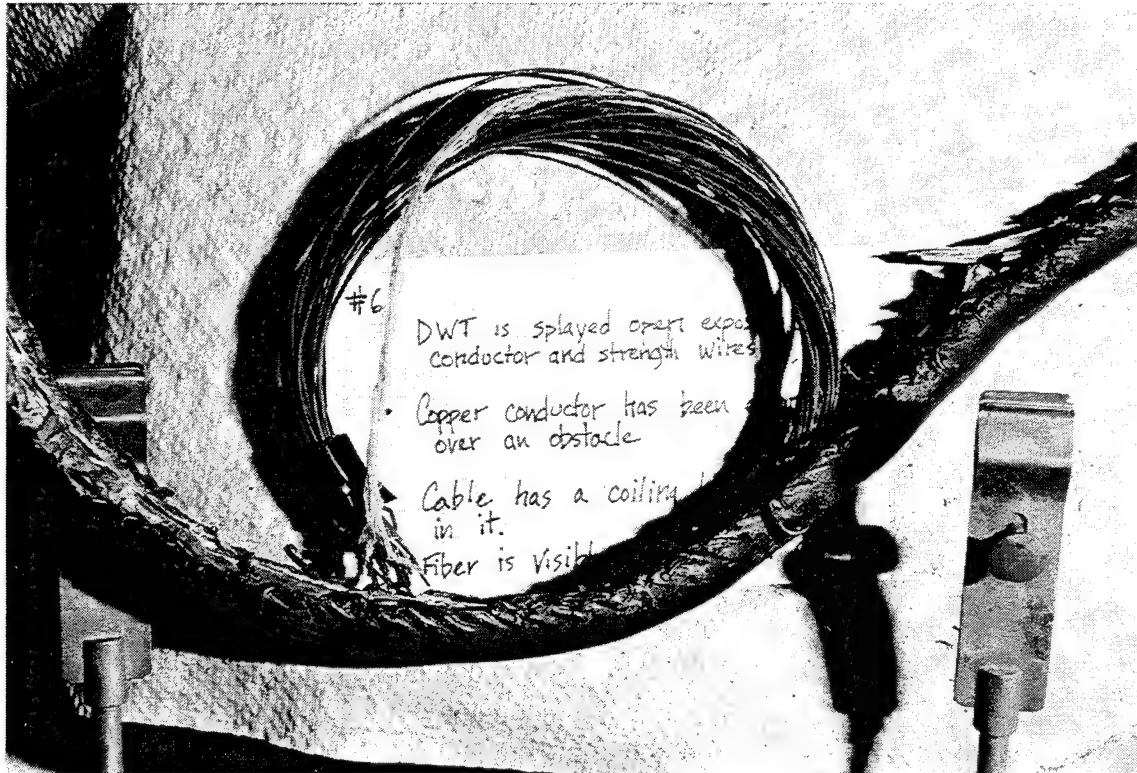 #6
DWT is splayed open
conductor and strength wires
Copper conductor has been
over an obstacle
Cable has a coiling
in it.
Fiber is